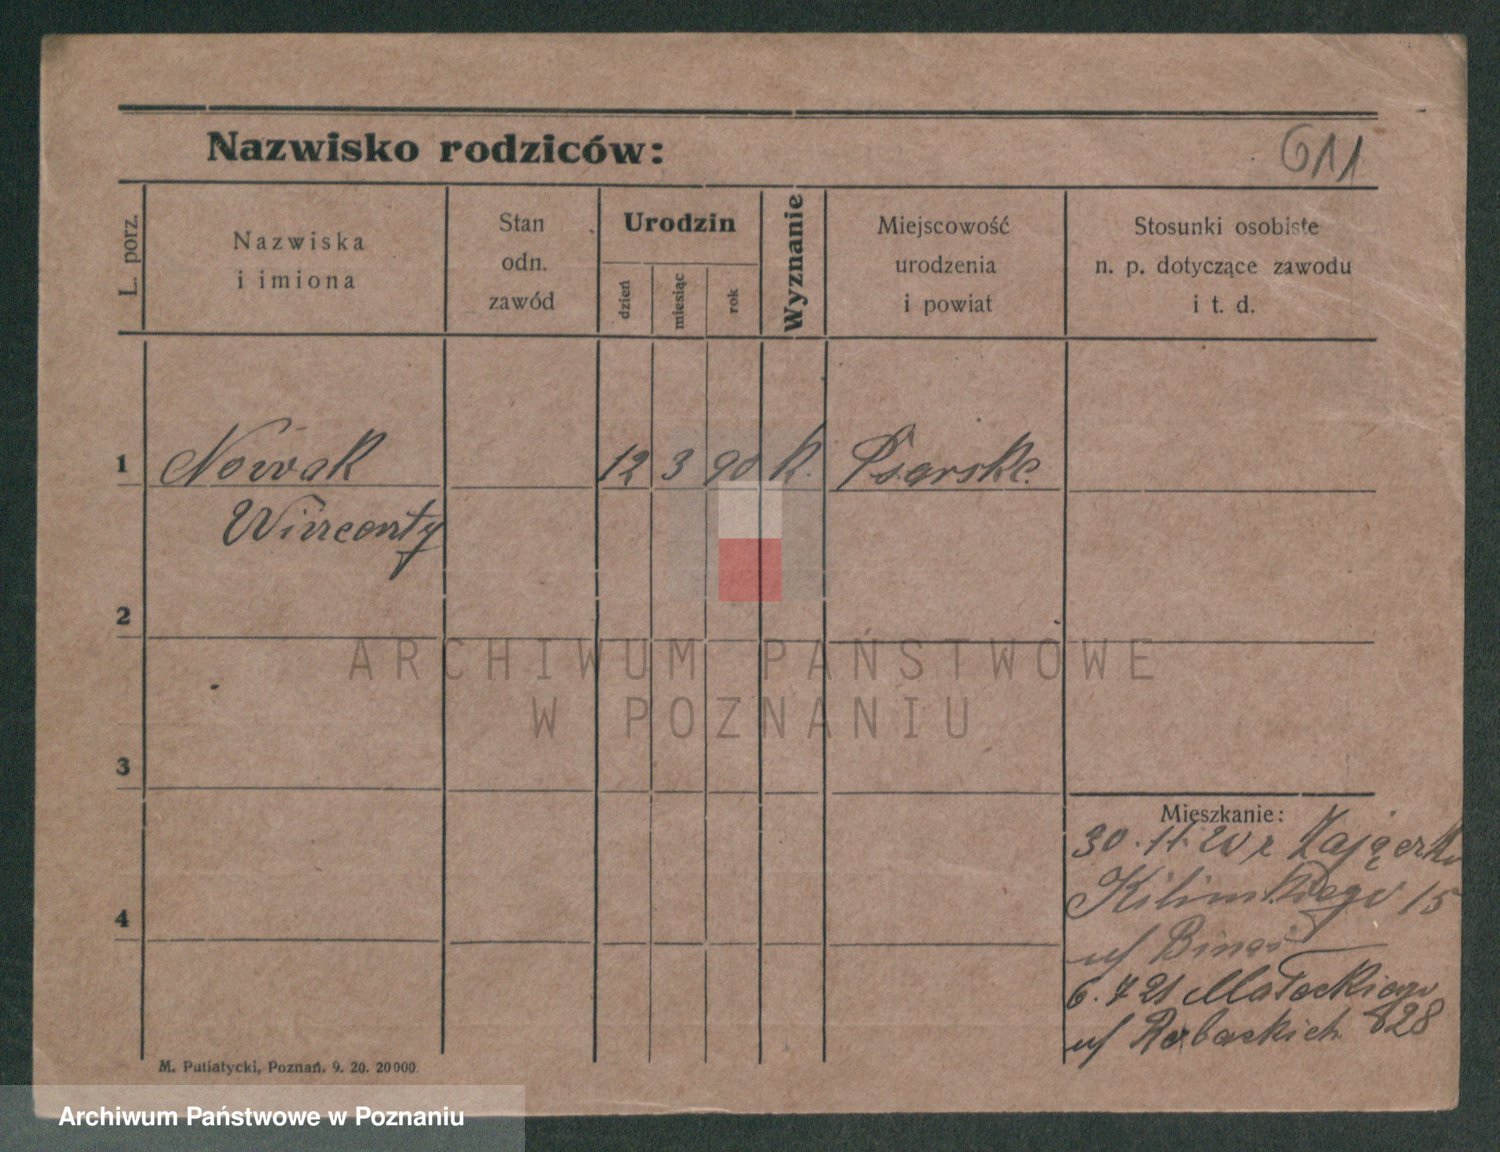 Nazwisko rodziców:
611
L. porz.
Nazwiska
i imiona
Stan
odn.
zawód
Urodzin
dzień
miesiąc
rok
Wyznanie
Miejscowość
urodzenia
i powiat
Stosunki osobiste
n. p. dotyczące zawodu
i t. d.
1
Nowak 12 3 90 k. Psarskie
Wincenty
2
ARCHIWUM PAŃSTWOWE
W POZNANIU
3
Mieszkanie:
30. 11. 20 z
Kilińskiego 15
4
u/ Binaś
6. 7 21 Małeckiego
u/ 28
M. Putiatycki, Poznań. 9. 20. 20000.
Archiwum Państwowe w Poznaniu